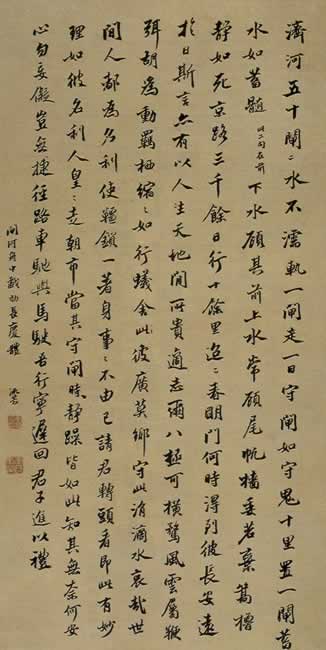 濟河五十閘〻水不濡軌一閘走一日守閘如守鬼十里置一閘蓄
水如蓄髓以二句在前下水顧其前上水常顧尾帆檣委若棄篙櫓
靜如死京路三千餘日行十餘里迢〻春明門何時得到彼長安遠
於日斯言亦有以人生天地間所貴適志爾八極可橫騖風雲屬鞭
弭胡為動羈栖縮〻如行蟻舍此彼廣莫鄉守此涓滴水哀哉世
間人都為名利使韁鎖一著身事〻不由己請君轉頭看即此有妙
理如彼名利人皇〻走朝市當其守閘時靜躁皆如此知其無奈何安
心勿妄儗豈無捷徑路車馳與馬駛吾行寧遲回君子進以禮
閘河舟中戲効長慶體